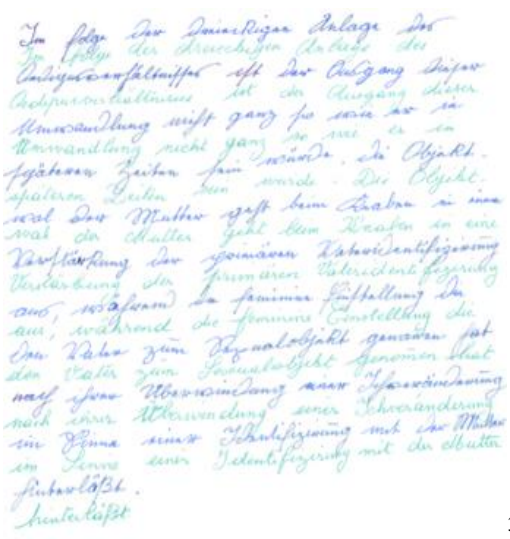 Im folge der dreieckigen Anlage des
Im folge der dreieckigen Anlage des
Oedipusverhältnisses ist der Ausgang dieser
Oedipusverhältnisses ist der Ausgang dieser
Umwandlung nicht ganz so wie er in
Umwandlung nicht ganz so wie er in
späteren Zeiten sein würde. Die Objekt-
späteren Zeiten sein würde. Die Objekt-
wal der Mutter geht beim Knaben in eine
wal der Mutter geht beim Knaben in eine
Verstärkung der primären Vateridentifizierung
Verstärkung der primären Vateridentifizierung
aus, während die feminine Einstellung die
aus, während die feminine Einstellung die
den Vater zum Sexualobjekt genomen hat
den Vater zum Sexualobjekt genomen hat
nach ihrer Überwindung einer Ichveränderung
nach ihrer Überwindung einer Ichveränderung
im Sinne einer Identifizierung mit der Mutter
im Sinne einer Identifizierung mit der Mutter
hinterläßt.
hinterläßt